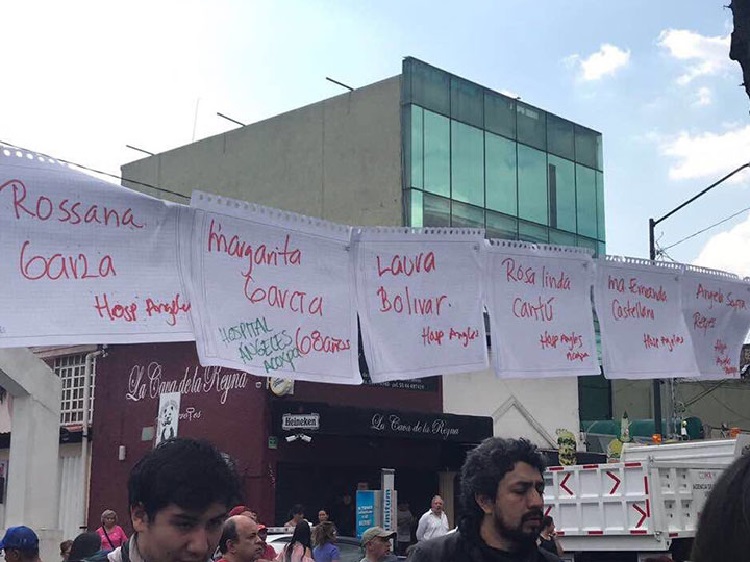 Rossana
Garza
Hosp Angeles
Margarita
García
HOSPITAL
ANGELES
68 años
Laura
Bolívar.
Hosp Angeles
Rosalinda
Cantú
Hosp Angeles
Fernanda
Castellan
Hosp Angeles
Angela
Reyes
Hosp
Angeles
La Cava de la Reyna
Heineken
La Cava de la Reyna